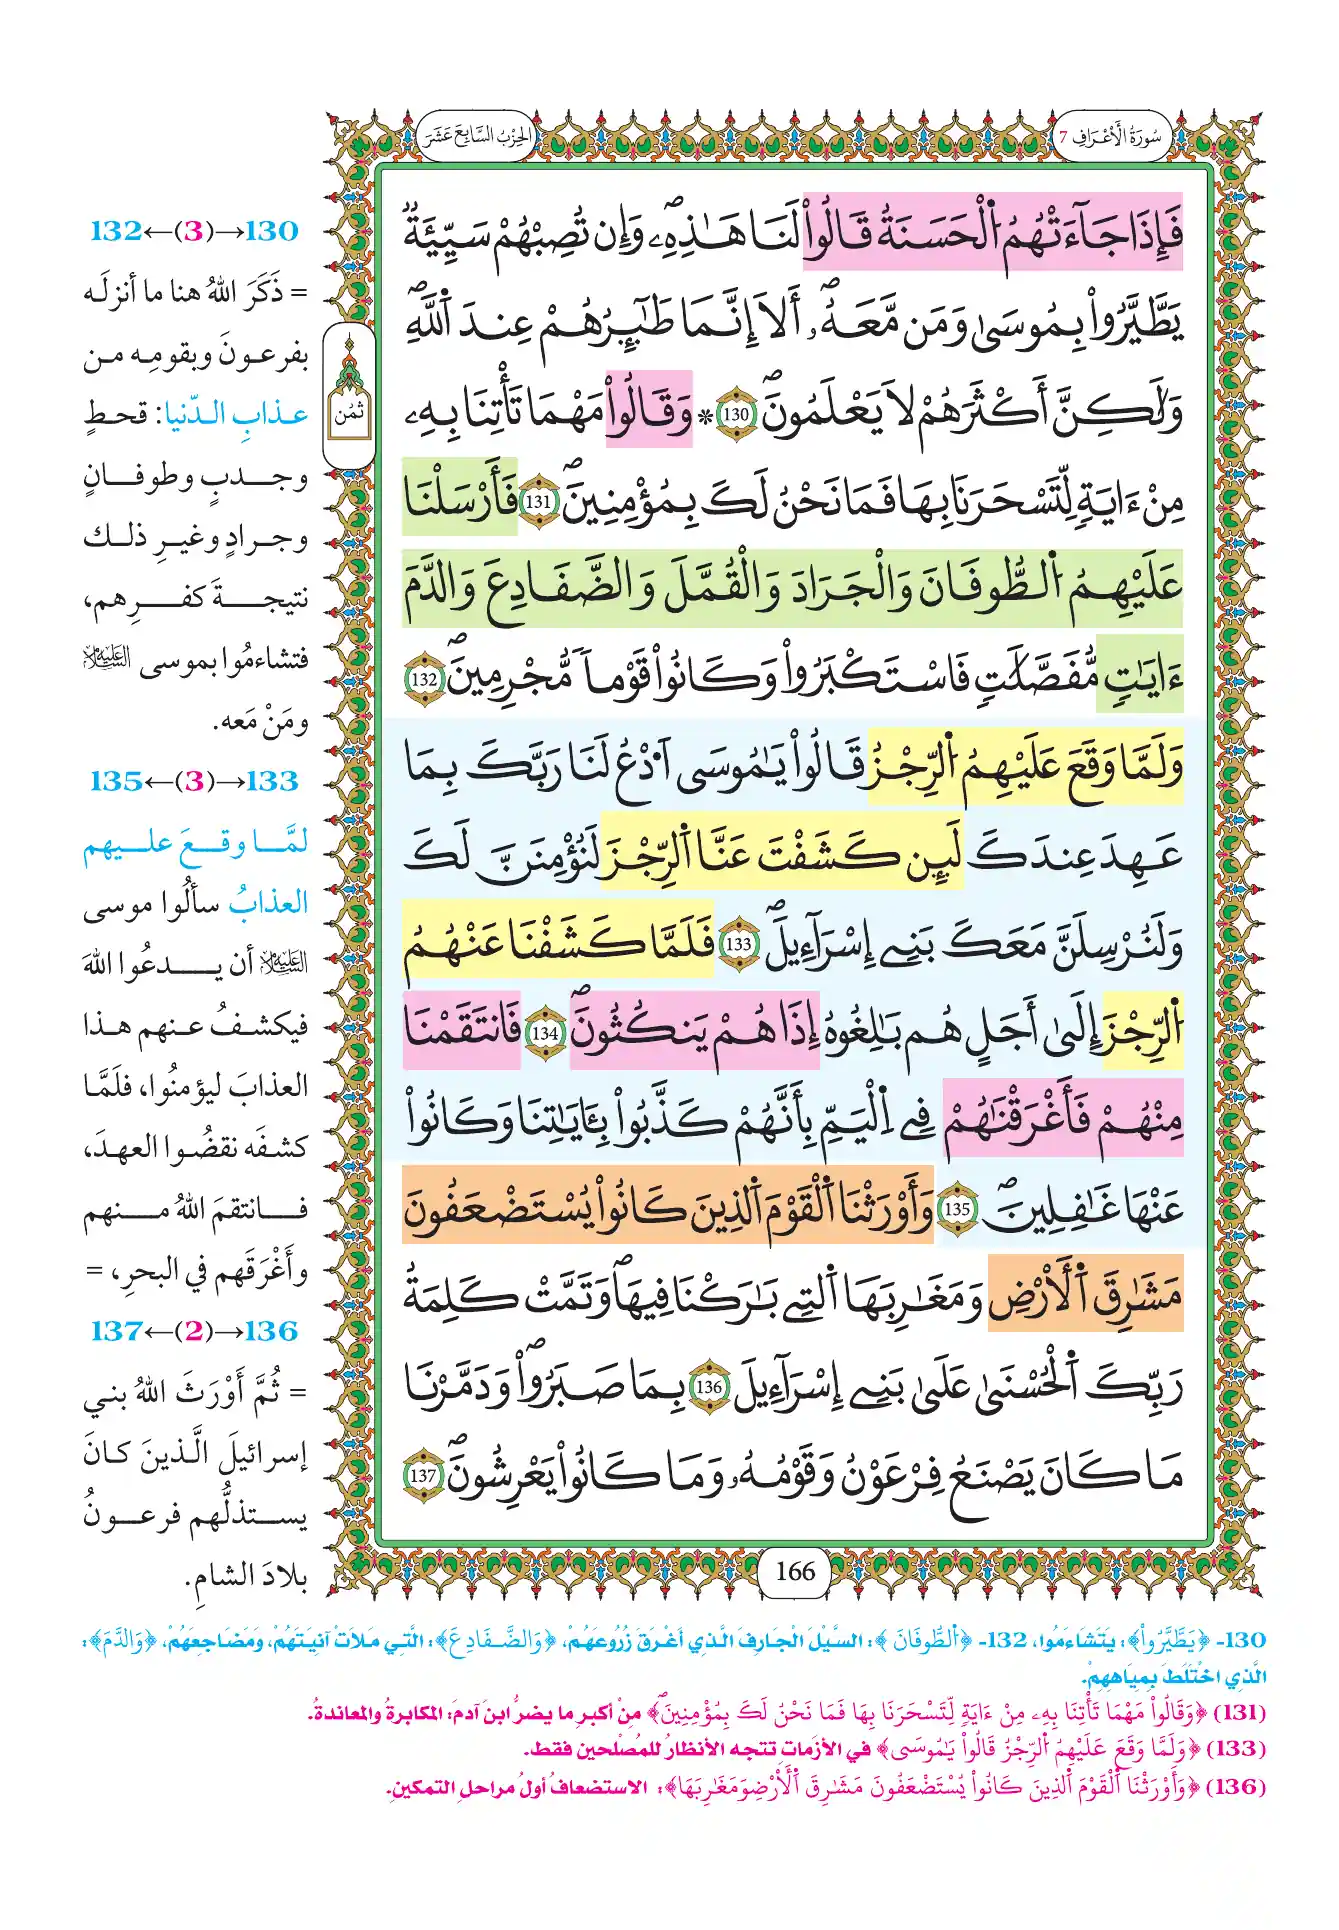 سُورَةُ الْأَعْرَافِ 7
الحِزْبُ السَّابِعَ عَشَرَ
فَإِذَا جَآءَتْهُمُ اُ۬لْحَسَنَةُ قَالُواْ لَنَا هَٰذِهِۦ وَإِن تُصِبْهُمْ سَيِّئَةٞ
يَطَّيَّرُواْ بِمُوسَىٰ وَمَن مَّعَهُۥٓ أَلَآ إِنَّمَا طَٰٓئِرُهُمْ عِندَ اَ۬للَّهِ
وَلَٰكِنَّ أَكْثَرَهُمْ لَا يَعْلَمُونَ 130 * وَقَالُواْ مَهْمَا تَأْتِنَا بِهِۦ
مِنْ ءَايَةٖ لِّتَسْحَرَنَا بِهَا فَمَا نَحْنُ لَكَ بِمُؤْمِنِينَ 131 فَأَرْسَلْنَا
عَلَيْهِمُ اُ۬لطُّوفَانَ وَالْجَرَادَ وَالْقُمَّلَ وَالضَّفَادِعَ وَالدَّمَ
ءَايَٰتٖ مُّفَصَّلَٰتٖ فَاسْتَكْبَرُواْ وَكَانُواْ قَوْماٗ مُّجْرِمِينَ 132
وَلَمَّا وَقَعَ عَلَيْهِمُ اُ۬لرِّجْزُ قَالُواْ يَٰمُوسَى اَ۟دْعُ لَنَا رَبَّكَ بِمَا
عَهِدَ عِندَكَ لَئِن كَشَفْتَ عَنَّا اَ۬لرِّجْزَ لَنُؤْمِنَنَّ لَكَ
وَلَنُرْسِلَنَّ مَعَكَ بَنِےٓ إِسْرَآءِيلَ 133 فَلَمَّا كَشَفْنَا عَنْهُمُ
اُ۬لرِّجْزَ إِلَىٰٓ أَجَلٍ هُم بَٰلِغُوهُ إِذَا هُمْ يَنكُثُونَ 134 فَانتَقَمْنَا
مِنْهُمْ فَأَغْرَقْنَٰهُمْ فِے اِ۬لْيَمِّ بِأَنَّهُمْ كَذَّبُواْ بِـَٔايَٰتِنَا وَكَانُواْ
عَنْهَا غَٰفِلِينَ 135 وَأَوْرَثْنَا اَ۬لْقَوْمَ اَ۬لذِينَ كَانُواْ يُسْتَضْعَفُونَ
مَشَٰرِقَ اَ۬لْأَرْضِ وَمَغَٰرِبَهَا اَ۬لتِے بَٰرَكْنَا فِيهَا وَتَمَّتْ كَلِمَةُ
رَبِّكَ اَ۬لْحُسْنَىٰ عَلَىٰ بَنِےٓ إِسْرَآءِيلَ 136 بِمَا صَبَرُواْ وَدَمَّرْنَا
مَا كَانَ يَصْنَعُ فِرْعَوْنُ وَقَوْمُهُۥ وَمَا كَانُواْ يَعْرِشُونَ 137
166
ثمن
130→(3)←132
= ذَكَرَ اللهُ هنا ما أنزلَه
بفرعونَ وبقومِه من
عذابِ الدّنيا: قحطٍ
وجدبٍ وطوفانٍ
وجرادٍ وغيرِ ذلك
نتيجةَ كفرِهم،
فتشاءمُوا بموسى عليه السلام
ومَنْ مَعه.
133→(3)←135
لمَّا وقعَ عليهم
العذابُ سألُوا موسى
عليه السلام أن يدعُوا اللهَ
فيكشفُ عنهم هذا
العذابَ ليؤمنُوا، فلَمَّا
كشفَه نقضُوا العهدَ،
فانتقمَ اللهُ منهم
وأَغْرَقَهم في البحرِ، =
136→(2)←137
= ثُمَّ أَوْرَثَ اللهُ بني
إسرائيلَ الَّذينَ كانَ
يستذلُّهم فرعونُ
بلادَ الشامِ.
130- ﴿يَطَّيَّرُواْ﴾: يَتَشَاءَمُوا، 132- ﴿اُ۬لطُّوفَانَ﴾: السَّيْلَ الْجَارِفَ الَّذِي أَغْرَقَ زُرُوعَهُمْ، ﴿وَالضَّفَادِعَ﴾: الَّتِي مَلَأَتْ آنِيَتَهُمْ، وَمَضَاجِعَهُمْ، ﴿وَالدَّمَ﴾:
الَّذِي اخْتَلَطَ بِمِيَاهِهِمْ.
(131) ﴿وَقَالُواْ مَهْمَا تَأْتِنَا بِهِۦ مِنْ ءَايَةٖ لِّتَسْحَرَنَا بِهَا فَمَا نَحْنُ لَكَ بِمُؤْمِنِينَ﴾ مِنْ أكبرِ ما يضرُّ ابنَ آدمَ: المكابرةُ والمعاندةُ.
(133) ﴿وَلَمَّا وَقَعَ عَلَيْهِمُ اُ۬لرِّجْزُ قَالُواْ يَٰمُوسَى﴾ في الأزماتِ تتجه الأنظارُ للمُصْلحين فقط.
(136) ﴿وَأَوْرَثْنَا اَ۬لْقَوْمَ اَ۬لذِينَ كَانُواْ يُسْتَضْعَفُونَ مَشَٰرِقَ اَ۬لْأَرْضِ وَمَغَٰرِبَهَا﴾: الاستضعافُ أولُ مراحلِ التمكينِ.